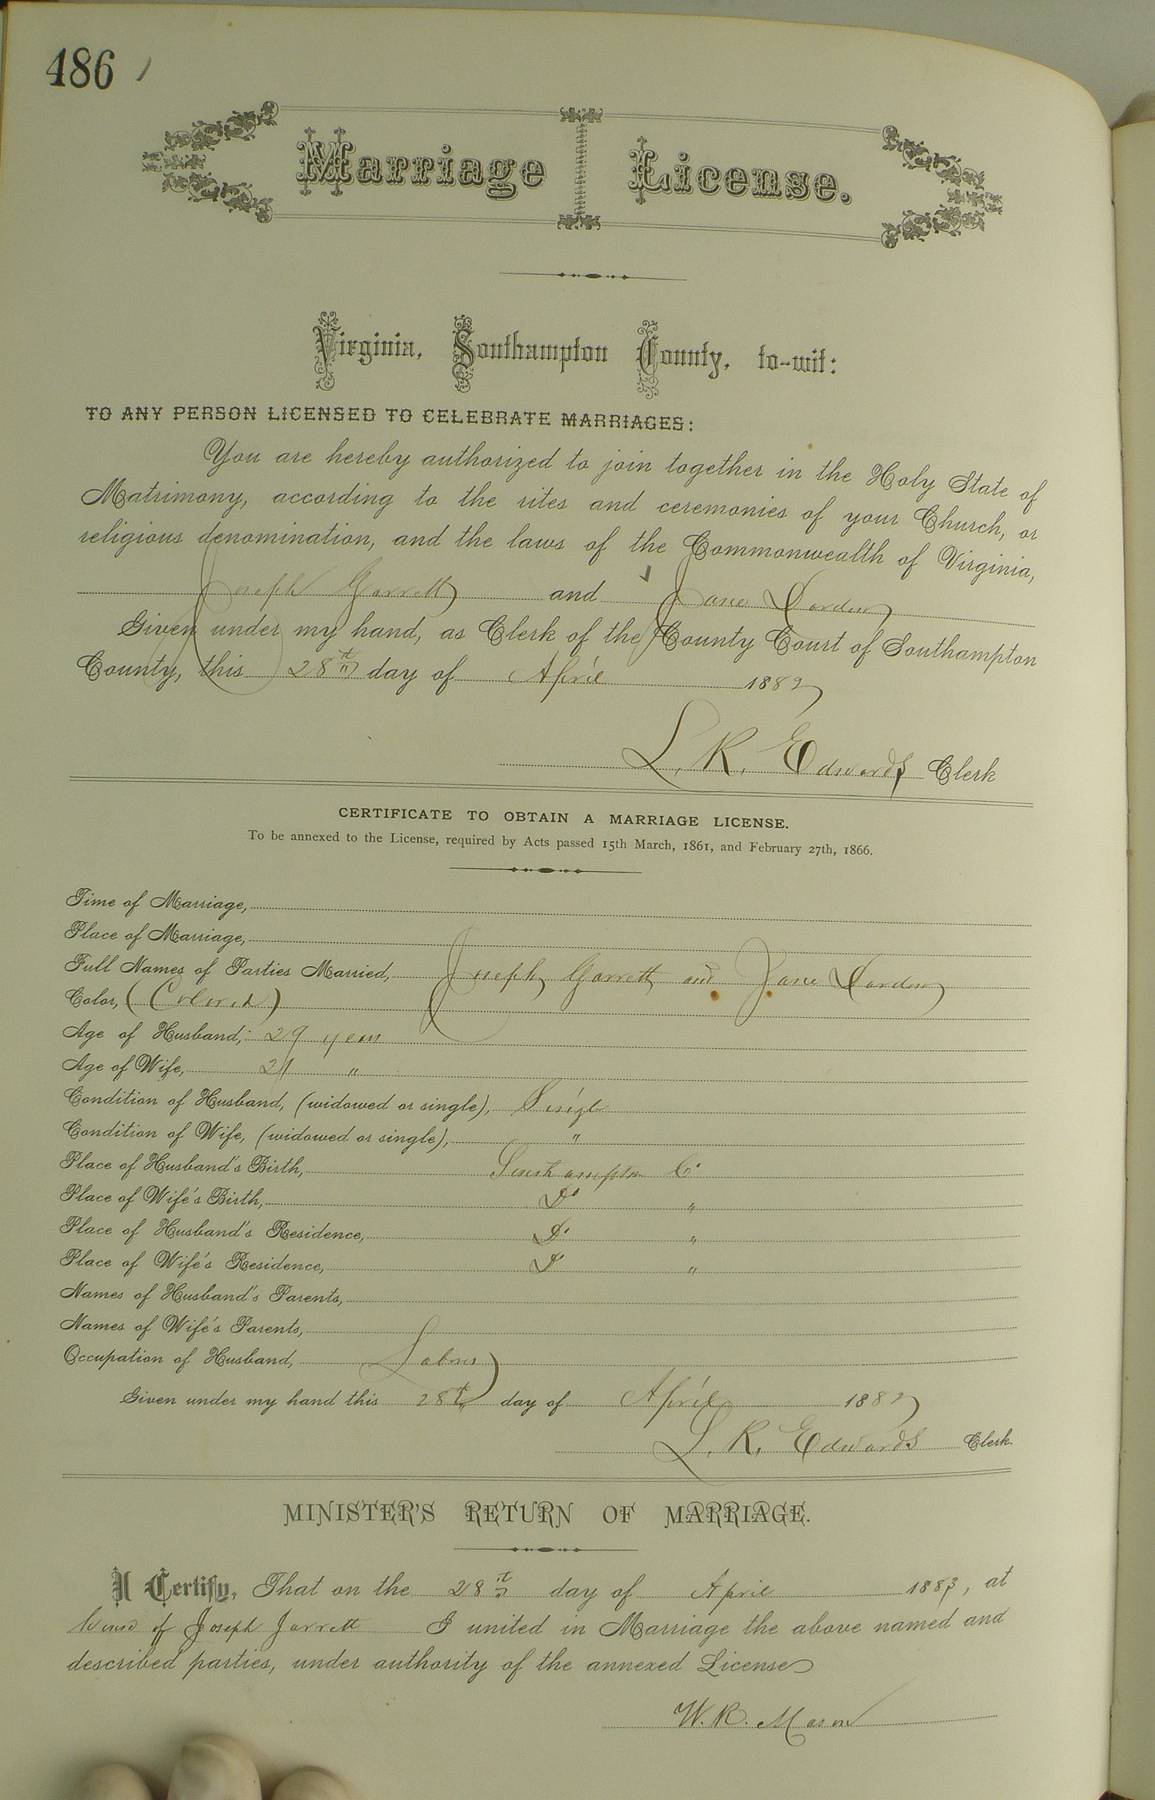 486
Marriage License.
Virginia, Southampton County, to-wit:
TO ANY PERSON LICENSED TO CELEBRATE MARRIAGES:
You are hereby authorized to join together in the Holy State of
Matrimony, according to the rites and ceremonies of your Church, or
religious denomination, and the laws of the Commonwealth of Virginia,
Joseph Garrett and Jane Darden
Given under my hand, as Clerk of the County Court of Southampton
County, this 28th day of April 1882
L. R. Edwards Clerk
CERTIFICATE TO OBTAIN A MARRIAGE LICENSE.
To be annexed to the License, required by Acts passed 15th March, 1861, and February 27th, 1866.
Time of Marriage,
Place of Marriage,
Full Names of Parties Married, Joseph Garrett and Jane Darden
Color, (Colored)
Age of Husband, 29 years
Age of Wife, 21 "
Condition of Husband, (widowed or single), Single
Condition of Wife, (widowed or single), "
Place of Husband's Birth, Southampton Co
Place of Wife's Birth, Do "
Place of Husband's Residence, Do "
Place of Wife's Residence, Do "
Names of Husband's Parents,
Names of Wife's Parents,
Occupation of Husband, Labor
Given under my hand this 28th day of April 1882
L. R. Edwards Clerk.
MINISTER'S RETURN OF MARRIAGE.
I Certify, That on the 28th day of April 1883, at
house of Joseph Jarrett I united in Marriage the above named and
described parties, under authority of the annexed License
W. R. Mason